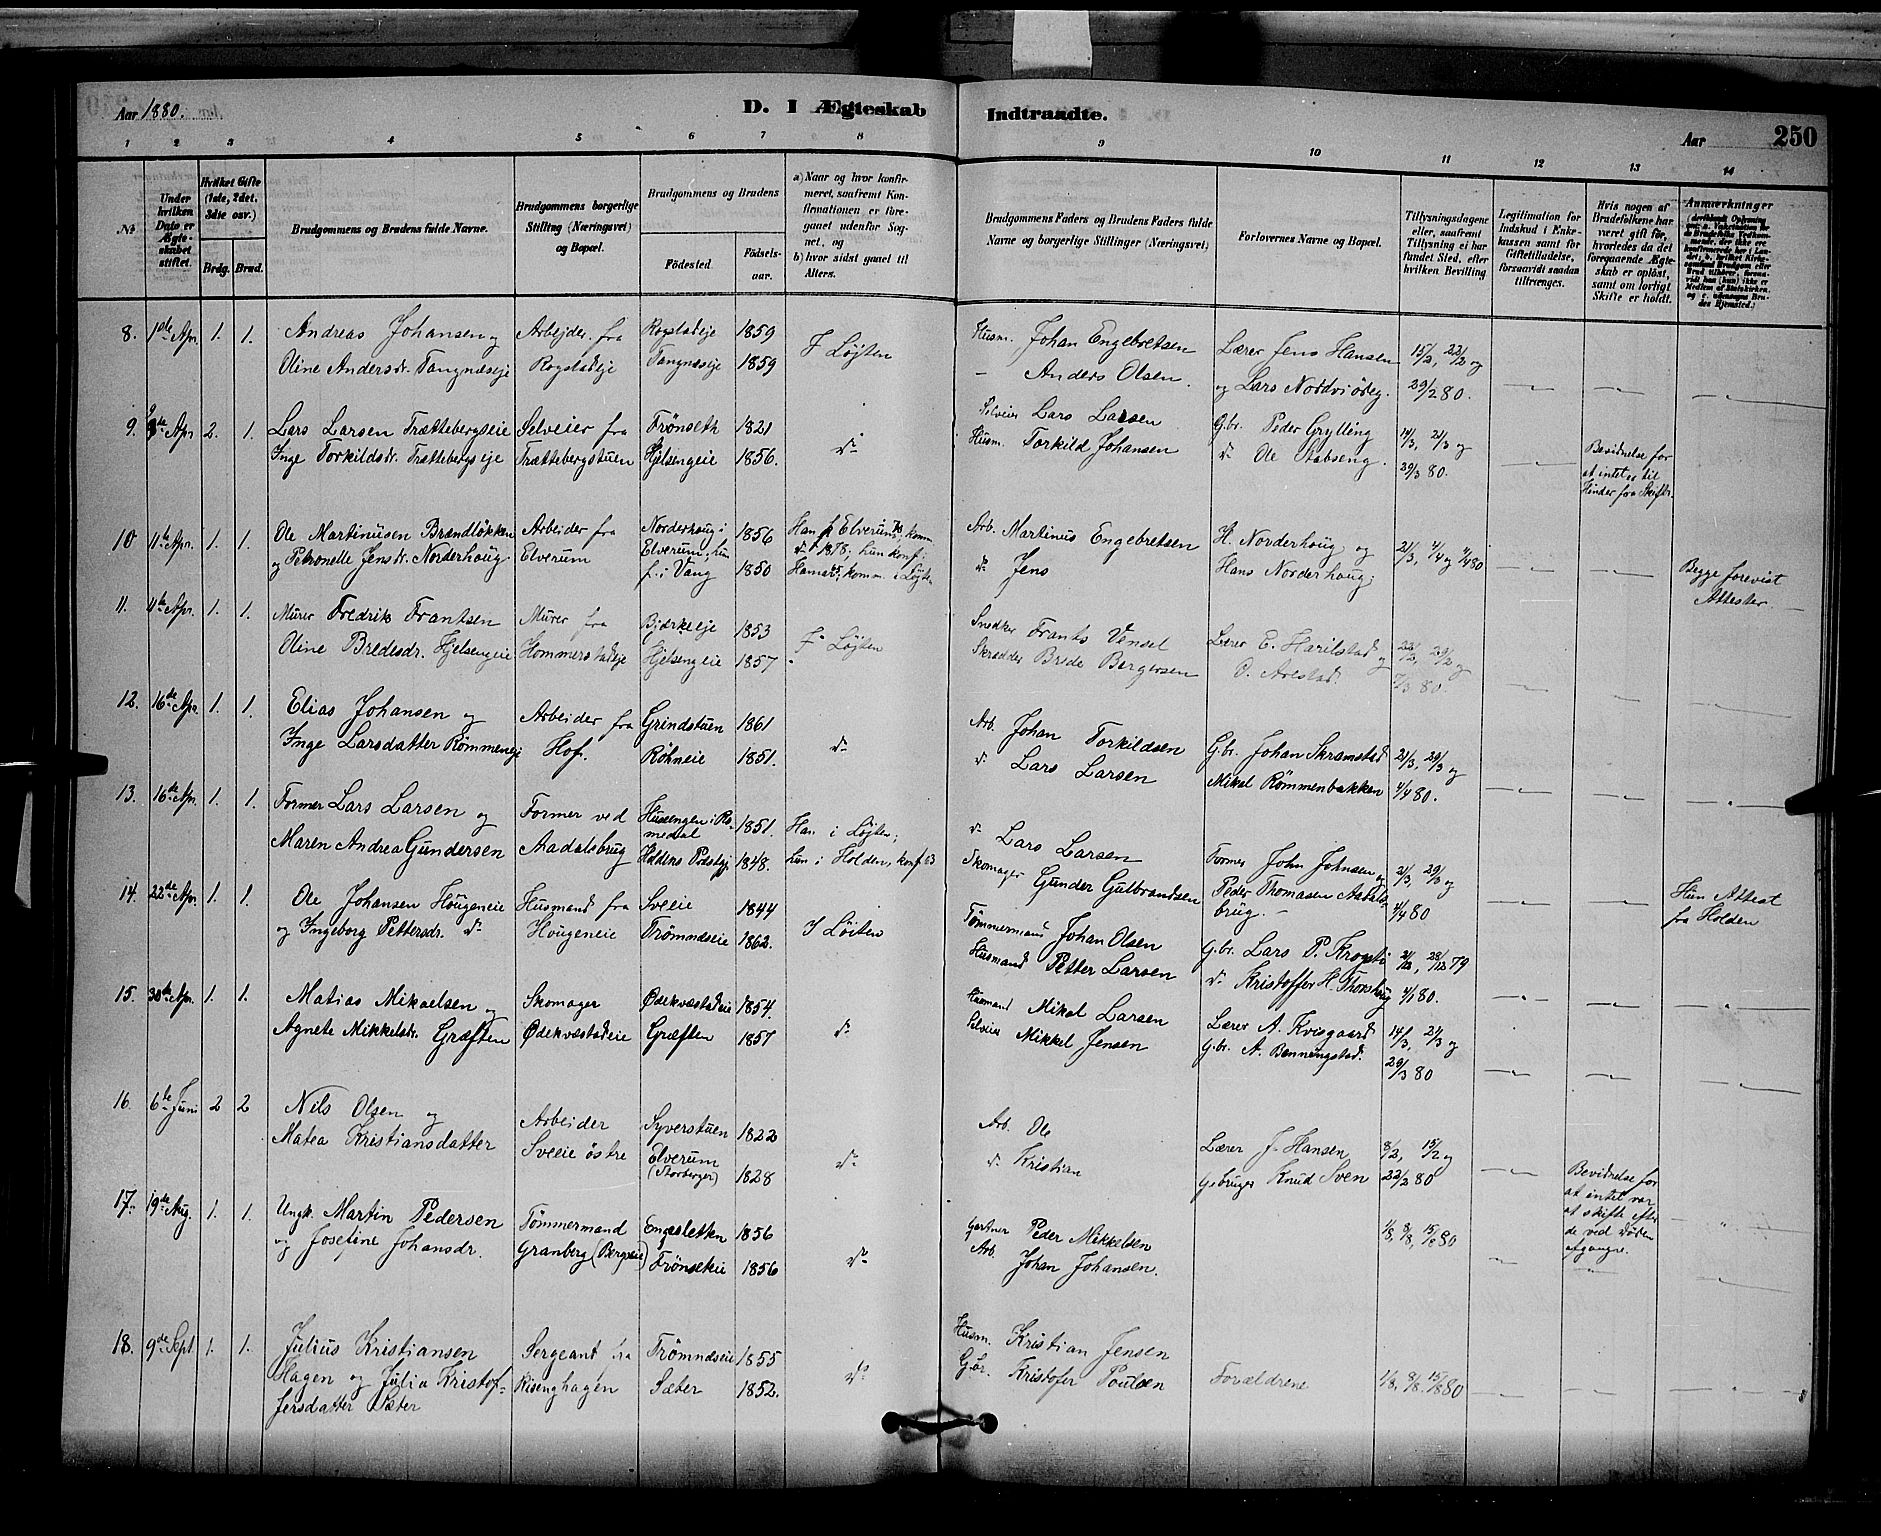 Aar 1880.
D. I Ægteskab
Indtraadte.
Aar
250
1 2 3 4 5 6 7 8 9 10 11 12 13 14
№
Under hvilken Dato er Ægteskabet stiftet.
Hvilket Gifte (1ste, 2det, 3die osv.)
Brdg. Brud.
Brudgommens og Brudens fulde Navne.
Brudgommens borgerlige Stilling (Næringsvei) og Bopæl.
Brudgommens og Brudens
Födested.
Födselsaar.
a) Naar og hvor konfirmeret, saafremt Konfirmationen er foregaaet udenfor Sognet, og
b) hvor sidst gaaet til Alters.
Brudgommens Faders og Brudens Faders fulde Navne og borgerlige Stillinger (Næringsvei)
Forlovernes Navne og Bopæl.
Tillysningsdagene eller, saafremt Tillysning ei har fundet Sted, efter hvilken Bevilling
Legitimation for Indskud i Enkekassen samt for Giftetilladelse, forsaavidt saadan tiltrænges.
Hvis nogen af Brudefolkene har været gift för, hvorledes da det foregaaende Ægteskab er oplöst, samt om lovligt Skifte er holdt.
Anmærkninger
8. 1de Apr. 1. 1. Andreas Johansen og Arbejder fra Rogstadeie 1859 I Løjten Husm. Johan Engebretsen Lærer Jens Hansen 15/2, 22/2 og
Oline Andersdr. Tangnæseje Rogstadeje Tangnæseje 1859 - Anders Olsen. og Lars Nordviöđeg. 29/2 80.
9. Apr. 2. 1. Lars Larsen Trættebergseie Selveier fra Frönseth 1821 do Selveier Lars Larsen G.br. Peder Grylling 14/3, 21/3 og
Inge Torkildsdr. Trættebergseje Trættebergstuen Hjelsengeie 1856. Husm. Torkild Johansen do Ole Stabseng. 29/3 80. Bevidnelse for at intet er til Hinder fra Skifter.
10 11te Apr. 1. 1. Ole Martinusen Brændløkken Arbeider fra Norderhoug i 1856 Han f. Elverum, komm. Arb. Martinus Engebretsen H. Norderhoug og 21/3, 4/4 og 11/4 80
og Petronelle Jensdr. Norderhoug. Elverum Elverum, hun f. i Vang 1850 do 1878, hun konf. i Hamar, komm. i Løjten do Jens Hans Norderhoug; Begge forevist Attester.
11. 11te Apr. 1. 1. Murer Fredrik Frantsen Murer fra Bjørkeeje 1853 I Løjten Snedker Frants Vensel Lærer E. Harilstad og 22/2, 29/2 og
Oline Bredesdr. Hjelsengeie Hommerstadeje Hjelsengeie 1857 Skrædder Brede Bergersen O. Arlstad. 7/3 80.
12. 16de Apr. 1. 1. Elias Johansen og Arbeider fra Grindstuen 1861 do Arb. Johan Torkildsen G.br. Johan Skramstad 21/3, 29/3 og
Inge Larsdatter Rømmeneje Hof. Röhneie 1851. do Lars Larsen Mikal Rømmenbakken 4/4 80.
13. 16de Apr. 1. 1. Former Lars Larsen og Former ved Husengen i Romedal 1851. Han i Løjten; do Lars Larsen Former John Johnsen og 21/3, 29/3 og
Maren Andrea Gundersen Aadalsbrug Holdens Pdstgj 1848. hun i Holden, konf. 63 Skomager Gunder Gulbrandsen Peder Thomasen Aadalsbrug. 4/4 80 Hun Attest fra Holden
14. 22de Apr. 1. 1. Ole Johansen Hougeneie Husmand fra Sveie 1844 I Løiten Tömmermand Johan Olsen G.br. Lars P. Krogsti 21/12, 28/12 79
og Ingeborg Pettersdr. do Hougeneie Trömnæseie 1862. Husmand Petter Larsen do Kristoffer H. Thorsbrug 4/1 80.
15. 30te Apr. 1. 1. Matias Mikaelsen og Skomager Ødekvæstadeie 1854. do Husmand Mikal Larsen Lærer A. Kvisgaard 14/3, 21/3 og
Agnete Mikkelsdr. Græften Ødekvæstadeie Græften 1857 Selveier Mikkel Jensen G.br. A. Benningstad. 29/3 80
16. 6te Juni 2 2 Nils Olsen og Arbeider Syverstuen 1822 do Arb. Ole Lærer J. Hansen 8/2, 15/2 og
Matea Kristiansdatter Sveeie östre Elverum (Storberget) 1828 do Kristian G.bruger Knud Sven 22/2 80 Bevidnelse for at intet var at skifte efter de ved Døden afgangne.
17. 19de Aug. 1. 1. Ungk. Martin Pedersen Tömmermand Engesletten 1856 do Gartner Peder Mikkelsen 1/8, 8/8, 15/8 80
og Josefine Johansdr. Granberg (Bergseie) Frönsekie 1856 Arb. Johan Johansen.
18. 9de Sept 1. 1. Julius Kristiansen Sergeant fra Trömnæseie 1855 do Husm. Kristian Jensen Forældrene 1/8, 8/8, 15/8 80
Hagen og Julia Kristoffersdatter Sæter Risenghagen Sæter 1852. G.br. Kristofer Poulsen